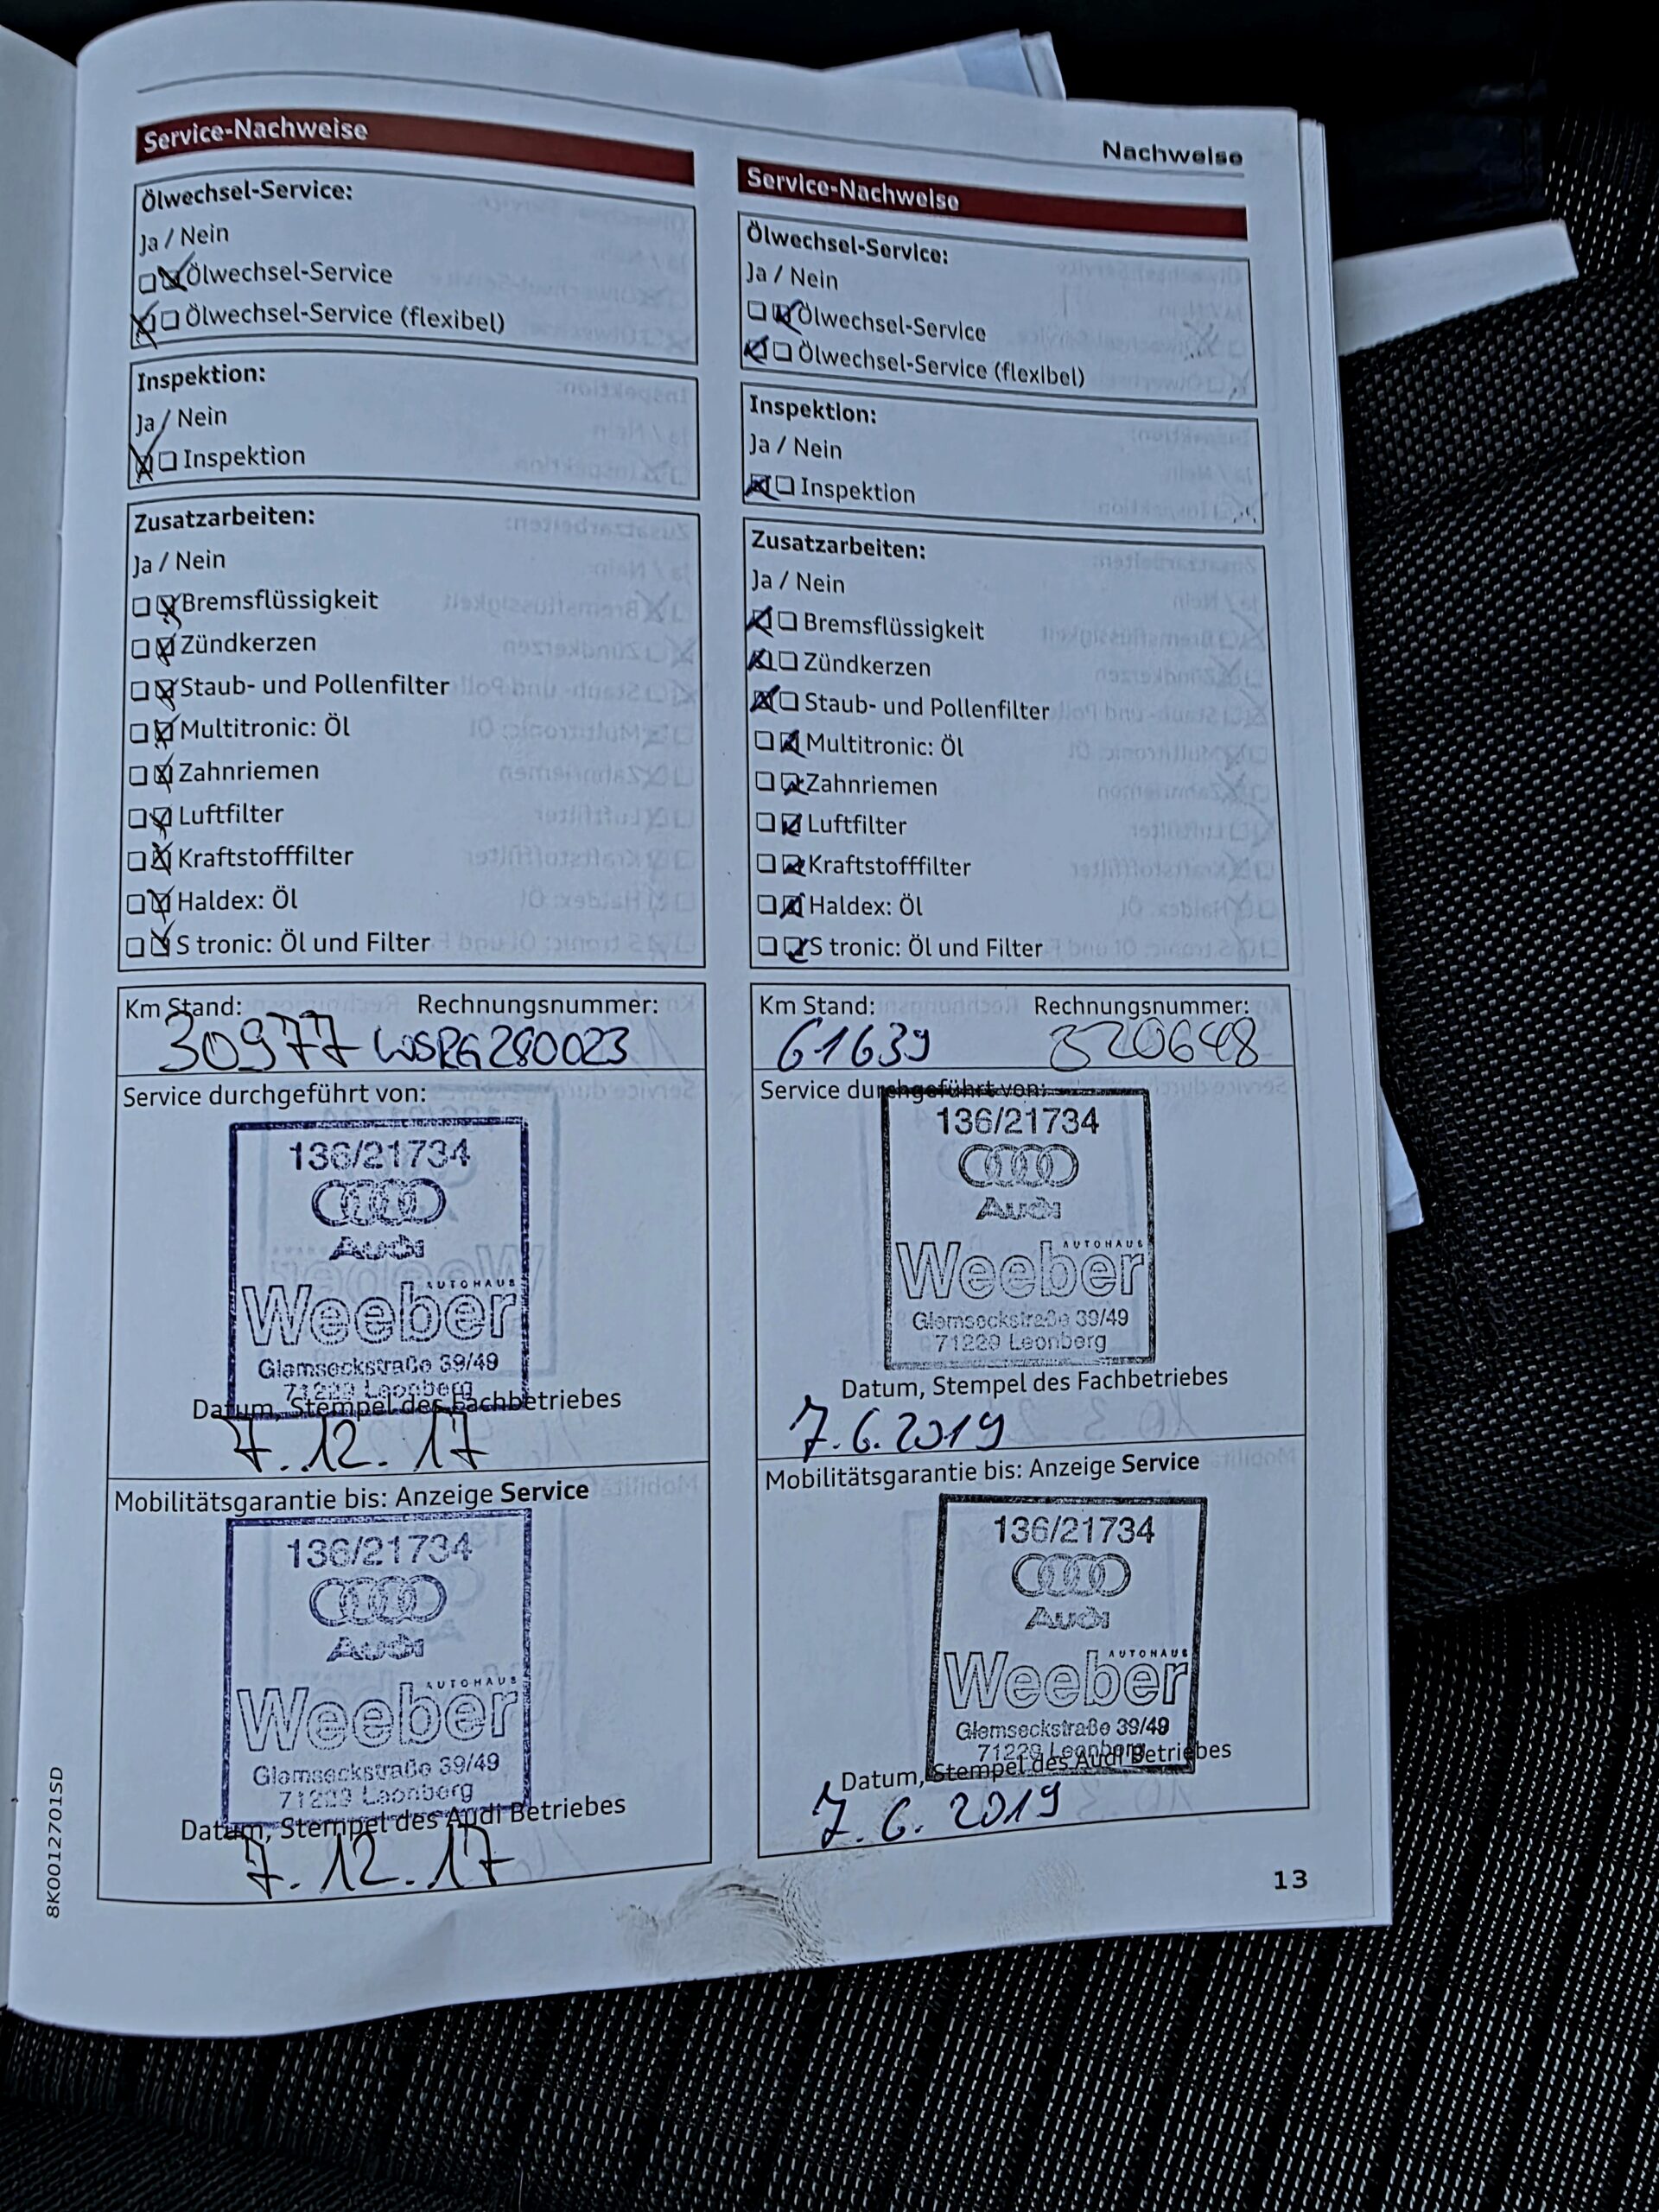 Nachweise
Service-Nachweise
Ölwechsel-Service:
Ja / Nein
Ölwechsel-Service
Ölwechsel-Service (flexibel)
Inspektion:
Ja / Nein
Inspektion
Zusatzarbeiten:
Ja / Nein
Bremsflüssigkeit
Zündkerzen
Staub- und Pollenfilter
Multitronic: Öl
Zahnriemen
Luftfilter
Kraftstofffilter
Haldex: Öl
S tronic: Öl und Filter
Km Stand: Rechnungsnummer:
30977 WSRG280023
Service durchgeführt von:
136/21734
Audi
AUTOHAUS
Weeber
Glemseckstraße 39/49
71229 Leonberg
Datum, Stempel des Fachbetriebes
7.12.17
Mobilitätsgarantie bis: Anzeige Service
136/21734
Audi
AUTOHAUS
Weeber
Glemseckstraße 39/49
71229 Leonberg
Datum, Stempel des Audi Betriebes
7.12.17
Service-Nachweise
Ölwechsel-Service:
Ja / Nein
Ölwechsel-Service
Ölwechsel-Service (flexibel)
Inspektion:
Ja / Nein
Inspektion
Zusatzarbeiten:
Ja / Nein
Bremsflüssigkeit
Zündkerzen
Staub- und Pollenfilter
Multitronic: Öl
Zahnriemen
Luftfilter
Kraftstofffilter
Haldex: Öl
S tronic: Öl und Filter
Km Stand: Rechnungsnummer:
61639 320648
Service durchgeführt von:
136/21734
Audi
AUTOHAUS
Weeber
Glemseckstraße 39/49
71229 Leonberg
Datum, Stempel des Fachbetriebes
7.6.2019
Mobilitätsgarantie bis: Anzeige Service
136/21734
Audi
AUTOHAUS
Weeber
Glemseckstraße 39/49
71229 Leonberg
Datum, Stempel des Audi Betriebes
7.6.2019
8K0012701SD
13